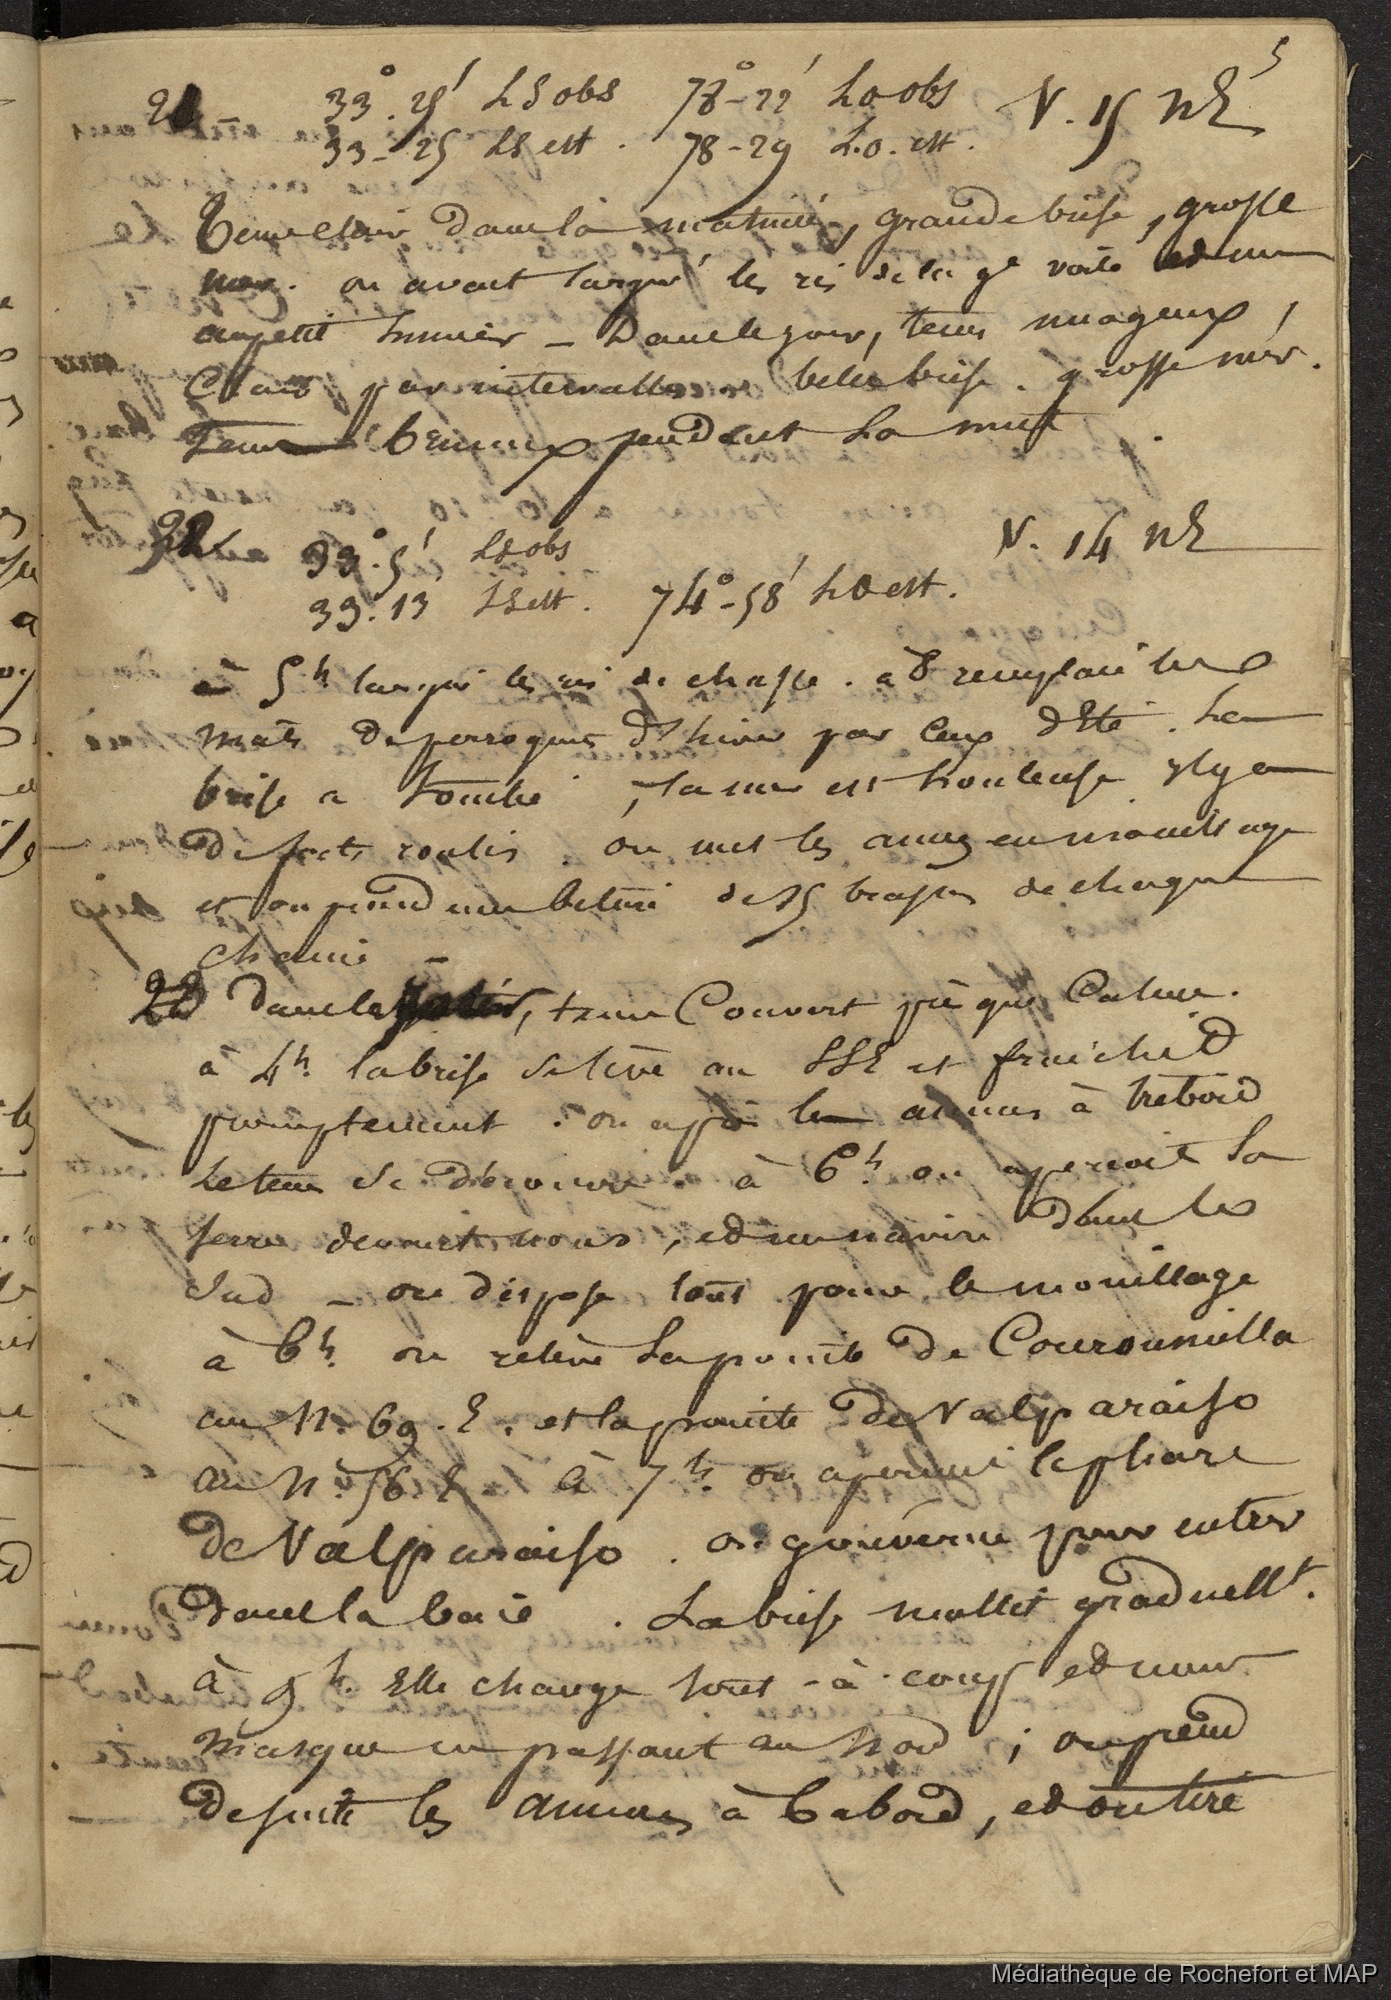 5
21 33°.25' LS obs 78°-22' LO obs V. 15 NE
33-25 LS est. 78-29 L.O. est.
Tems clair dans la matinée, grande brise, grosse
mer. on avait largué les ris de la gde voile et un
au petit hunier - Dans le jour, tems nuageux,
Clair par intervalles belle brise. grosse mer.
Tems brumeux pendant la nuit.
22 33°.5' LS obs V. 14 NE
33.13 LS est. 74°-58' LO est.
à 5h largué les ris de chasse. à 8 remplacé les
mats de perroquet d'hiver par ceux d'Eté. La
brise a tombé, la mer est houleuse il y a
de forts roulis. on met les ancres en mouillage
et on prend une biture de 25 brasses de chaque
chaine -
22 dans le, tems Couvert presque Calme.
à 4h. la brise se lève au SSE et fraichit
promptement. on a pris les amures à tribord
Le tems se découvre. à 6h. on aperçoit la
terre devant nous, et un navire dans le
Sud - on dispose tout pour le mouillage
à 6h. on relève la pointe de Couroumilla
au N. 69. E. et la pointe de Valparaiso
au N. 56 E à 7h. on aperçoit le phare
de Valparaiso. on gouverne pour entrer
dans la baie. La brise mollit graduellt.
à 9h. Elle change tout-à-coup et nous
masque en passant au Nord; on prend
de suite les amures à babord, et on tire
Médiathèque de Rochefort et MAP